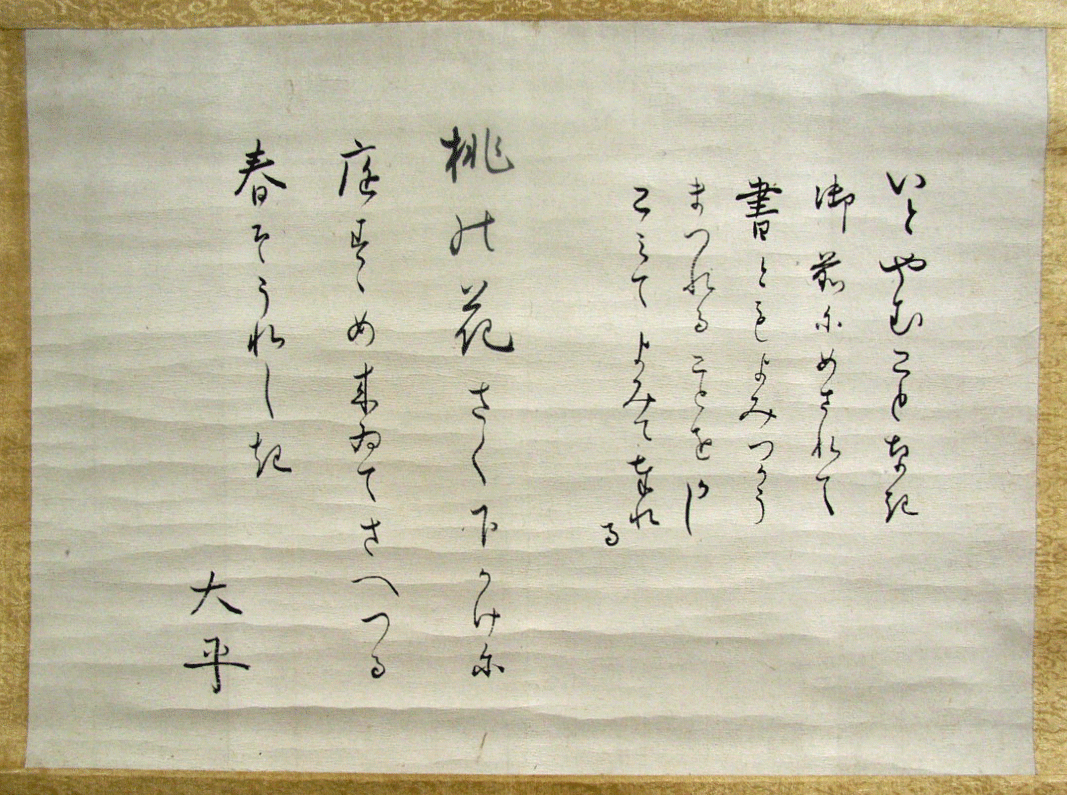 いとやむことなき
御前にめされて
書ともよみつかう
まつれることをかし
こみてよみて奉れ
る
桃の花さく下かけに
庭すゝめ来ゐてさへつる
春そうれしき
大平